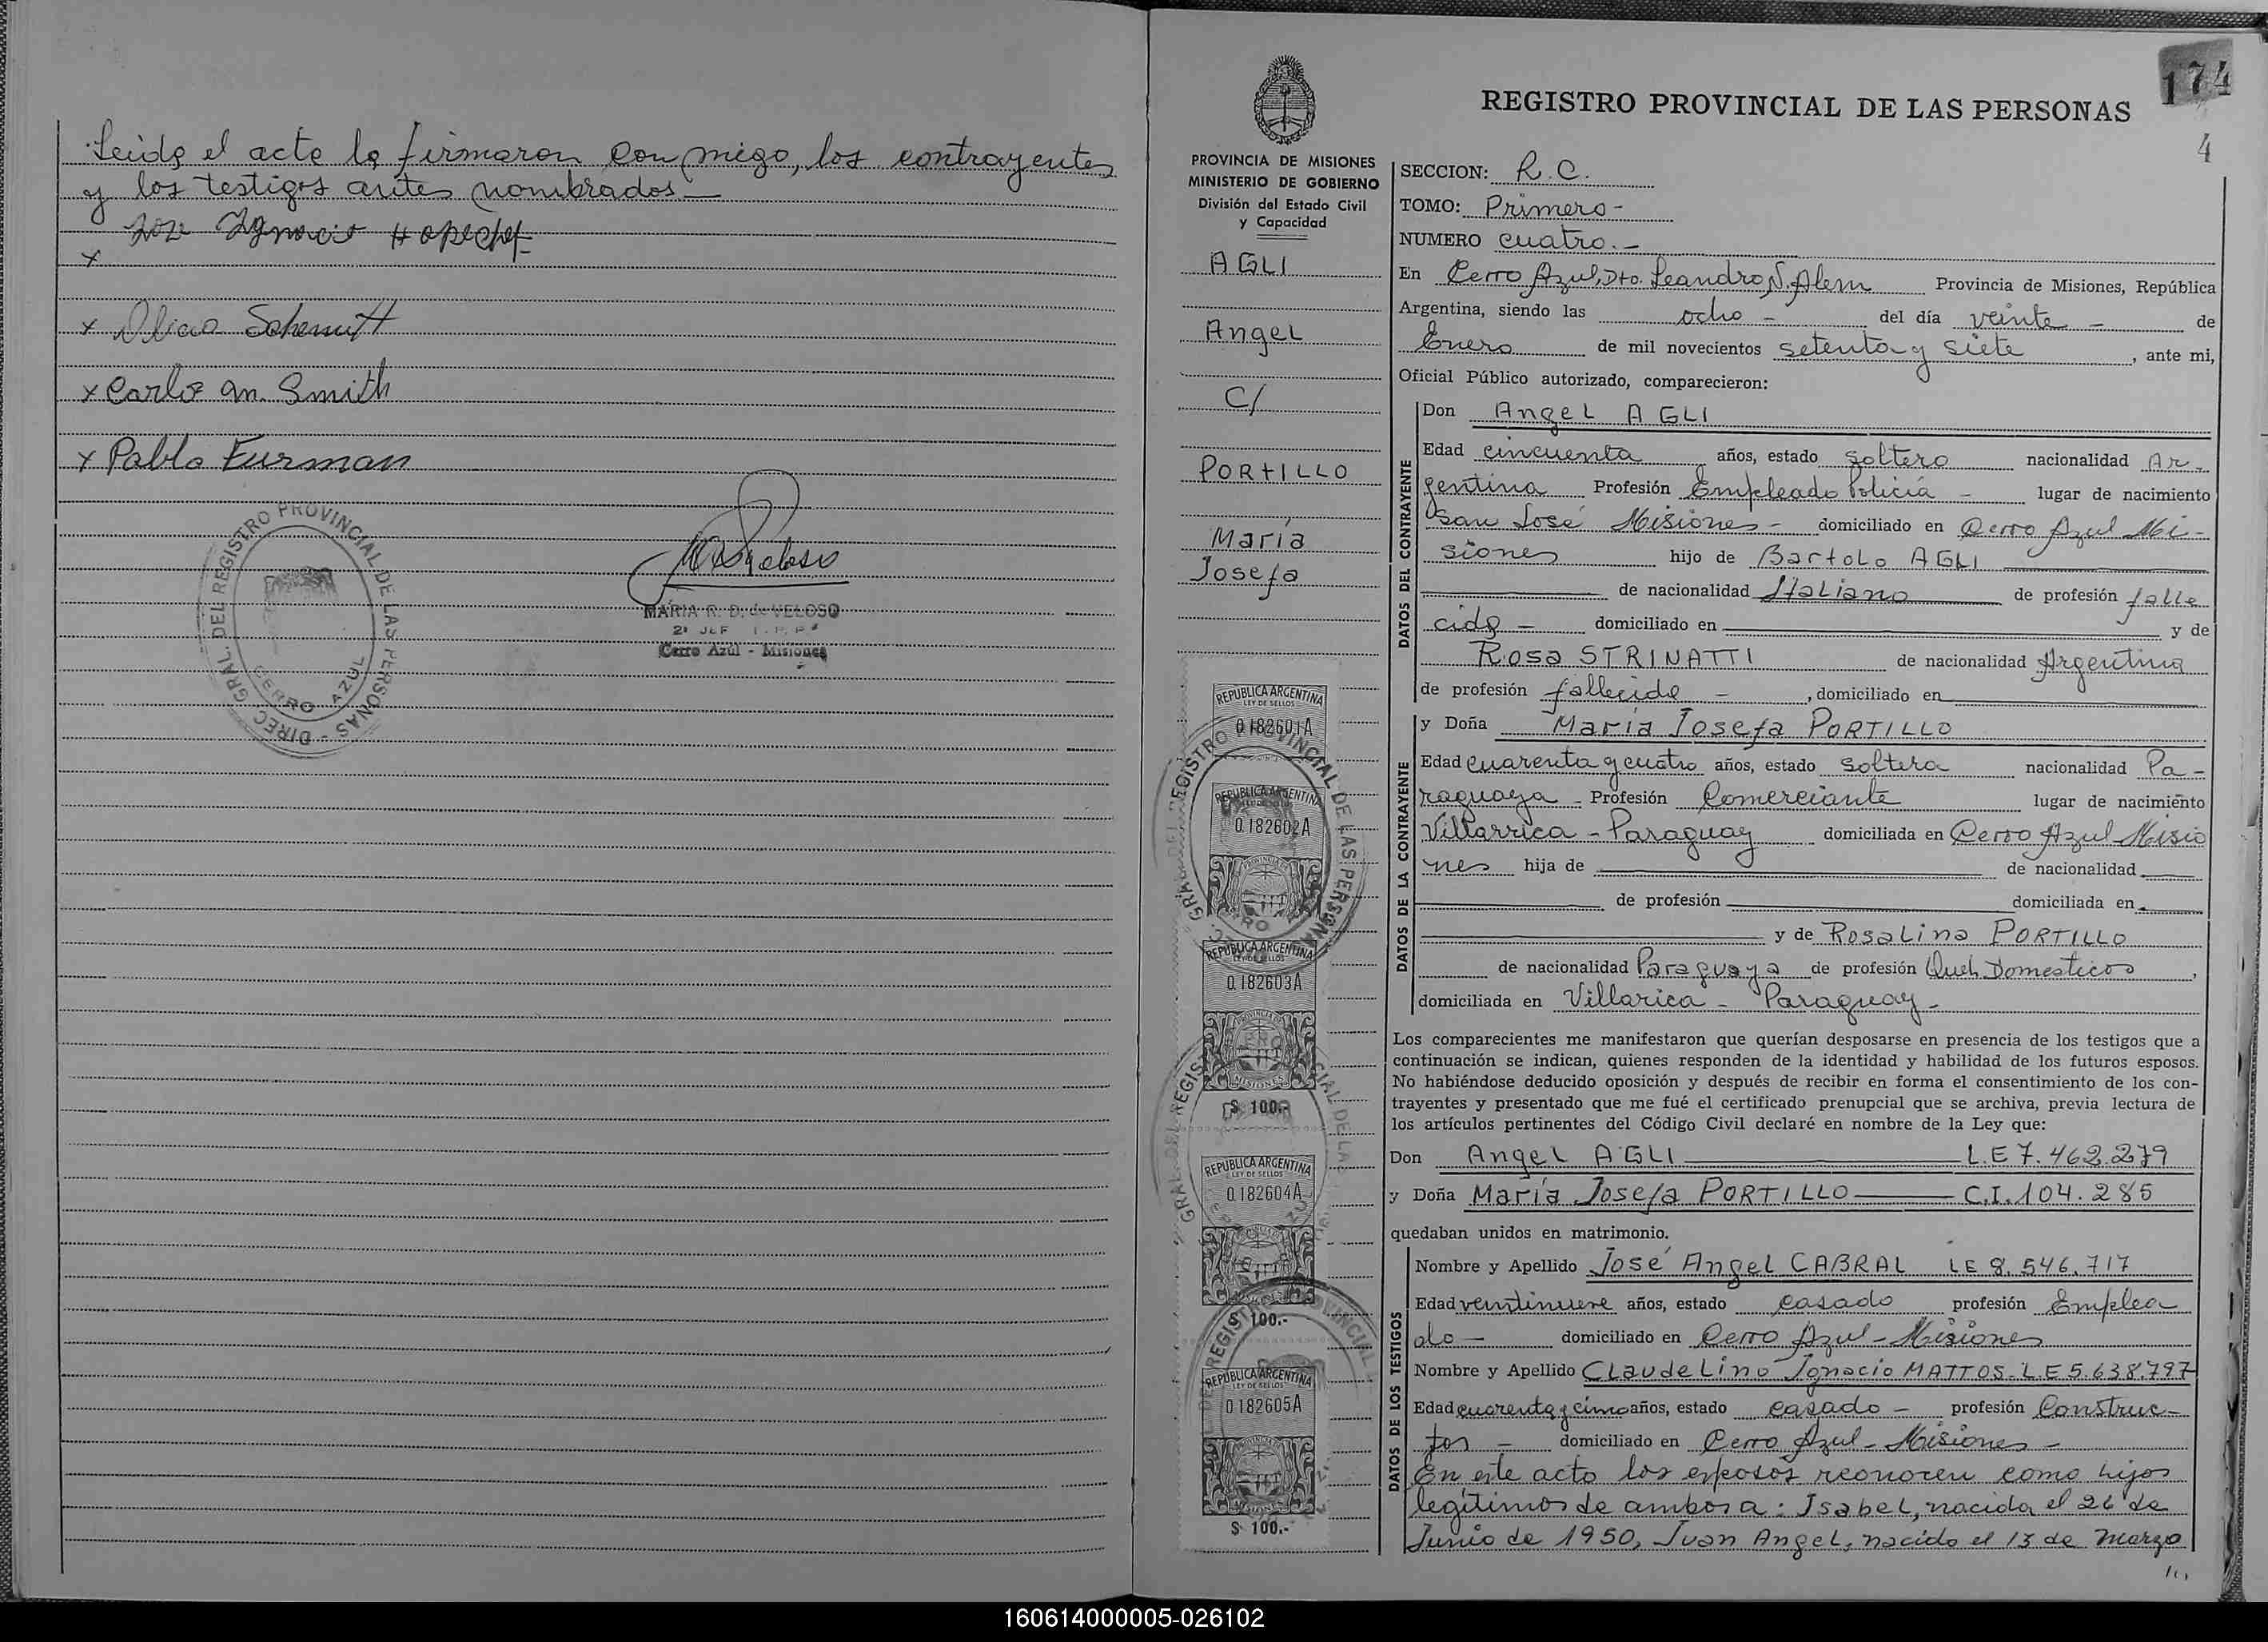 Leido el acto lo firmaron con migo, los contrayentes
y los testigos antes nombrados.—
Jose Ignacio
x
x Olicia Schmitt
x Carlos m. Smith
x Pablo Furman
DIREC. GRAL. DEL REGISTRO PROVINCIAL DE LAS PERSONAS -
CERRO AZUL
MARIA R. D. de VELOSO
Cerro Azul - Misiones
174
4
REGISTRO PROVINCIAL DE LAS PERSONAS
PROVINCIA DE MISIONES
MINISTERIO DE GOBIERNO
División del Estado Civil
y Capacidad
AGLI
Angel
C/
PORTILLO
María
Josefa
REPUBLICA ARGENTINA
LEY DE SELLOS
0.182601A
REPUBLICA ARGENTINA
0.182602A
REPUBLICA ARGENTINA
LEY DE SELLOS
0.182603A
MISIONES
$ 100.-
REPUBLICA ARGENTINA
LEY DE SELLOS
0.182604A
$ 100.-
REPUBLICA ARGENTINA
LEY DE SELLOS
0182605A
$ 100.-
SECCION: R.C.
TOMO: Primero -
NUMERO cuatro.-
En Cerro Azul, Dto. Leandro N. Alem Provincia de Misiones, República
Argentina, siendo las ocho - del día veinte - de
Enero de mil novecientos setenta y siete, ante mi,
Oficial Público autorizado, comparecieron:
DATOS DEL CONTRAYENTE
Don Angel AGLI
Edad cincuenta años, estado soltero nacionalidad Ar-
gentina Profesión Empleado Policía - lugar de nacimiento
San José Misiones - domiciliado en Cerro Azul Mi-
siones hijo de Bartolo AGLI
de nacionalidad Italiano de profesión falle
cido - domiciliado en y de
Rosa STRINATTI de nacionalidad Argentina
de profesión fallecida -, domiciliado en
DATOS DE LA CONTRAYENTE
y Doña María Josefa PORTILLO
Edad cuarenta y cuatro años, estado soltera nacionalidad Pa-
raguaya - Profesión Comerciante lugar de nacimiento
Villarrica - Paraguay domiciliada en Cerro Azul Misio
nes hija de de nacionalidad
de profesión domiciliada en
y de Rosalina PORTILLO
de nacionalidad Paraguaya de profesión Queh. Domesticos,
domiciliada en Villarica - Paraguay -
Los comparecientes me manifestaron que querían desposarse en presencia de los testigos que a
continuación se indican, quienes responden de la identidad y habilidad de los futuros esposos.
No habiéndose deducido oposición y después de recibir en forma el consentimiento de los con-
trayentes y presentado que me fué el certificado prenupcial que se archiva, previa lectura de
los artículos pertinentes del Código Civil declaré en nombre de la Ley que:
Don Angel AGLI L.E 7.462.279
y Doña María Josefa PORTILLO C.I. 104.285
quedaban unidos en matrimonio.
DATOS DE LOS TESTIGOS
Nombre y Apellido José Angel CABRAL LE 8.546.717
Edad veintinueve años, estado casado profesión Emplea
do - domiciliado en Cerro Azul - Misiones
Nombre y Apellido Claudelino Ignacio MATTOS. L.E 5.638.797
Edad cuarenta y cinco años, estado casado - profesión Construc-
tor - domiciliado en Cerro Azul - Misiones -
En este acto los esposos reconocen como hijos
legítimos de ambos a: Isabel, nacida el 26 de
Junio de 1950, Juan Angel, nacido el 13 de Marzo
160614000005-026102